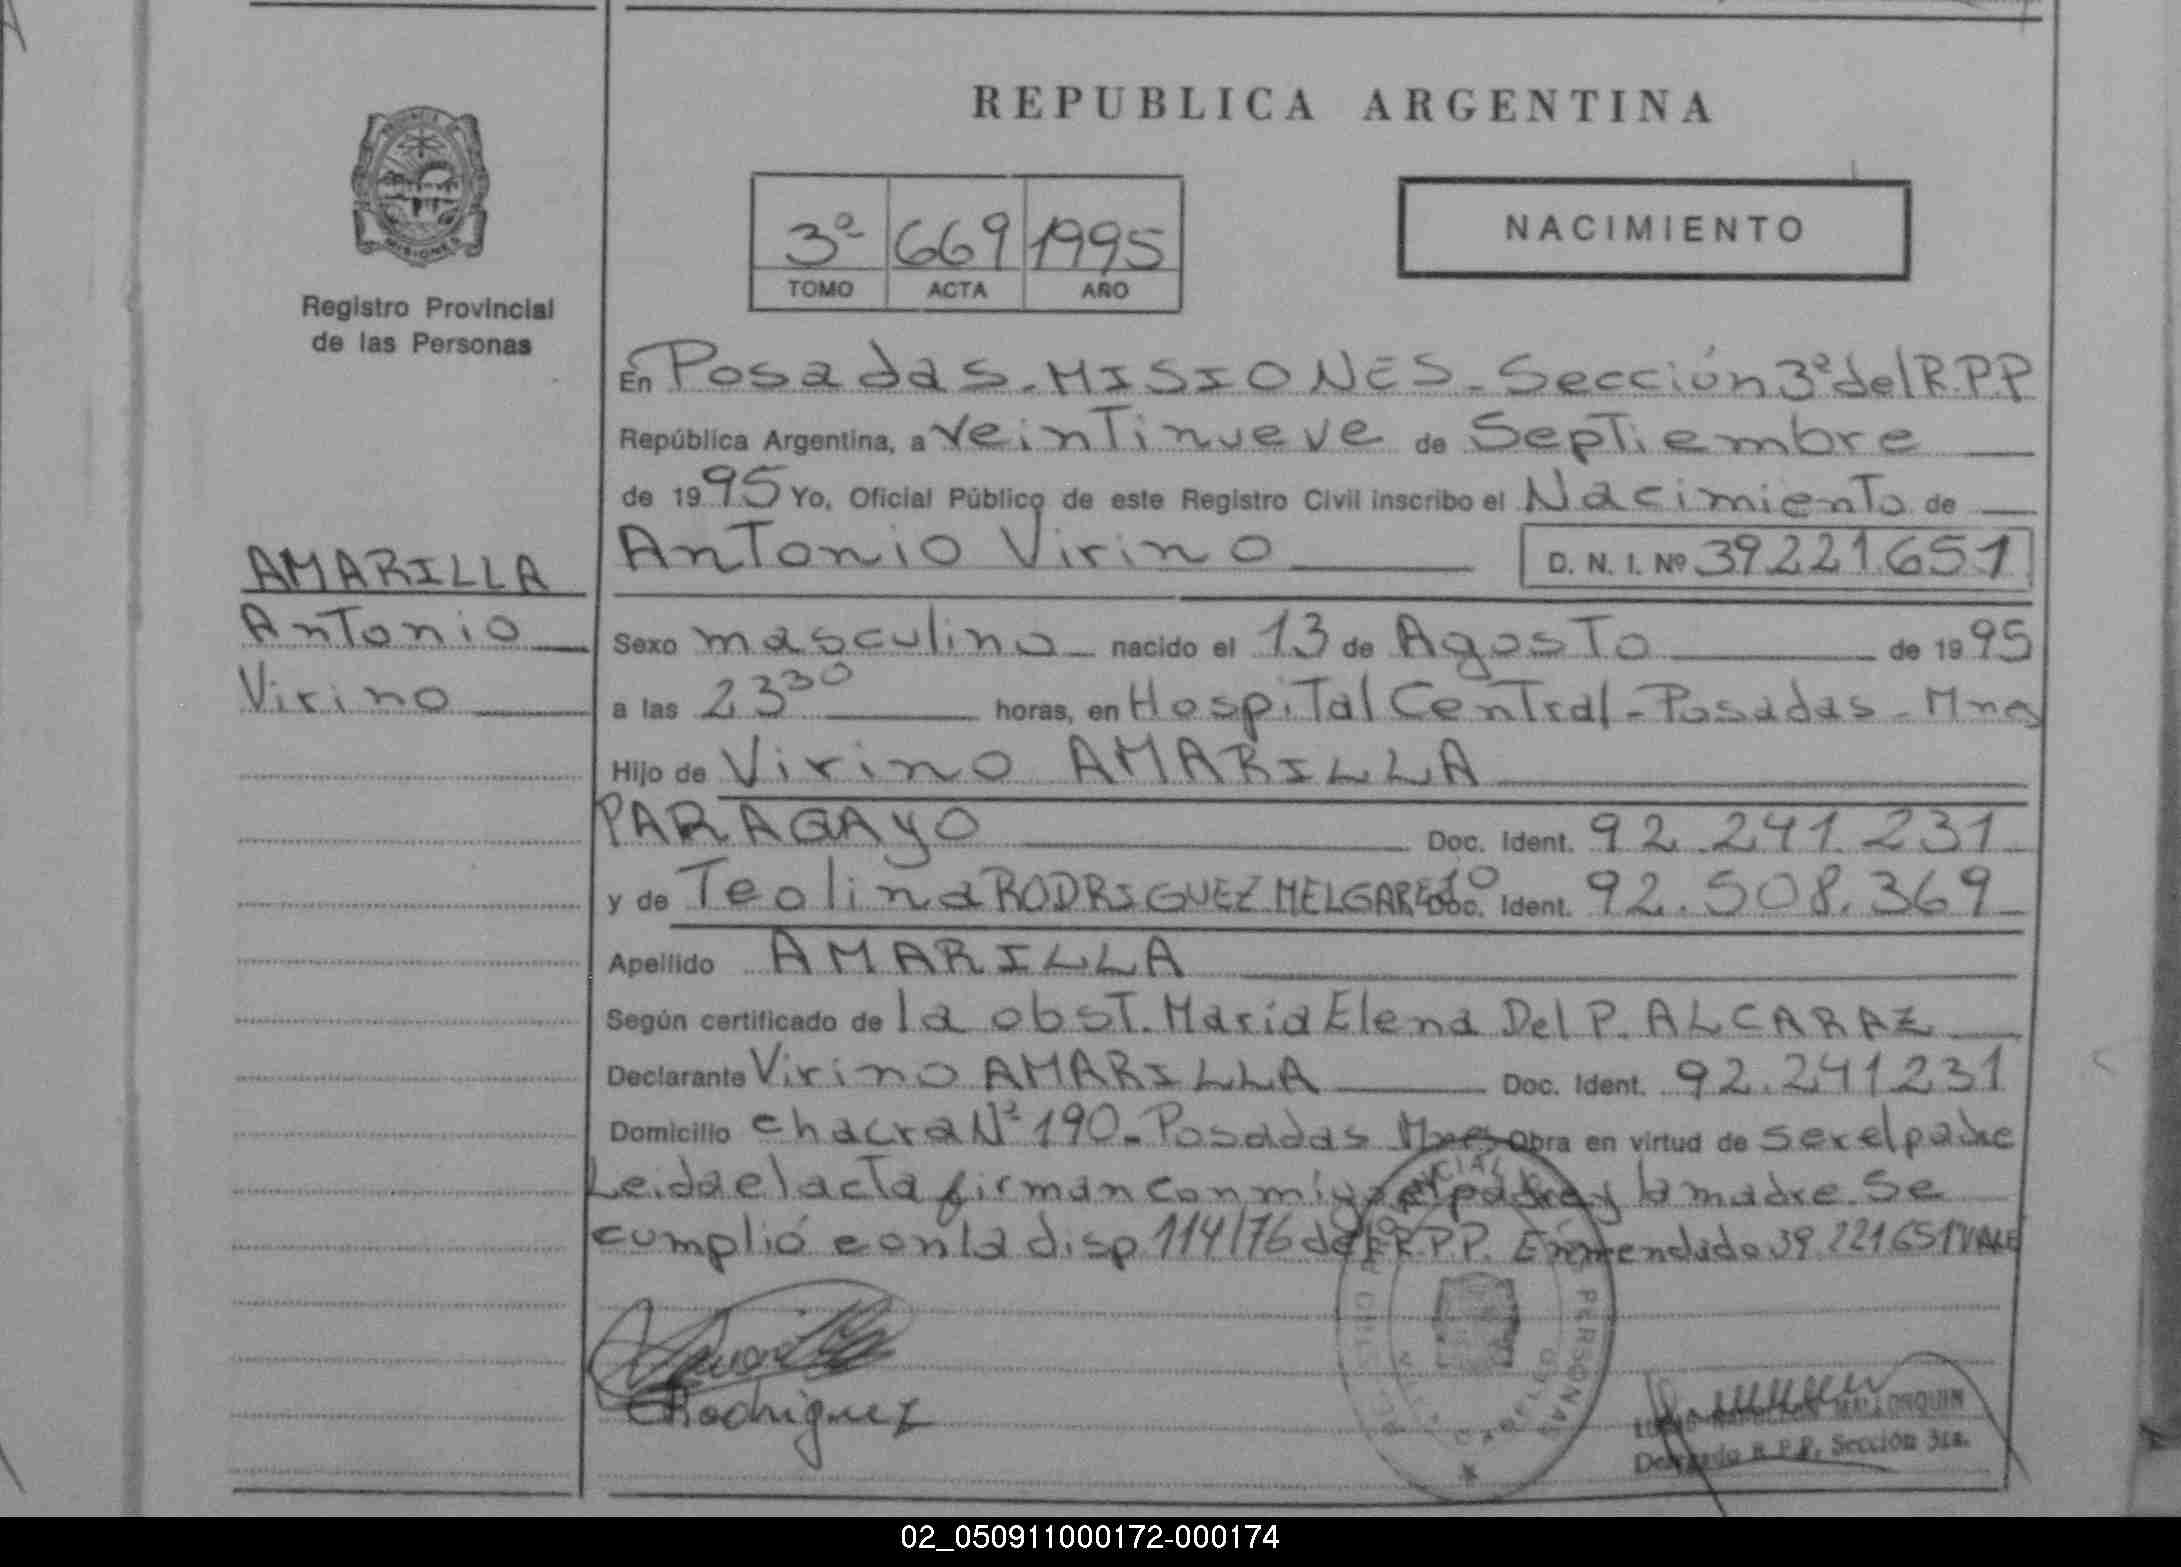 REPUBLICA ARGENTINA
3ª 669 1995
TOMO ACTA AÑO
NACIMIENTO
MISIONES
Registro Provincial
de las Personas
AMARILLA
Antonio
Virino
En Posadas - MISIONES - Sección 3ª del R.P.P
República Argentina, a veintinueve de Septiembre
de 1995 Yo, Oficial Público de este Registro Civil inscribo el Nacimiento de
Antonio Virino D. N. I. Nº 39.221.651
Sexo masculino nacido el 13 de Agosto de 1995
a las 23 30 horas, en Hospital Central - Posadas - Mnes
Hijo de Virino AMARILLA
PARAGAYO Doc. Ident. 92.241.231
y de Teolina RODRIGUEZ MELGAREJO Doc. Ident. 92.508.369
Apellido AMARILLA
Según certificado de la obst. Maria Elena Del P. ALCARAZ
Declarante Virino AMARILLA Doc. Ident. 92.241231
Domicilio chacra Nº 190 - Posadas Mnes Obra en virtud de ser el padre
Leida el acta firman conmigo el padre y la madre. Se
cumplió con la disp. 114/76 del R.P.P. Enmendado 39.221651 VALE
Rodriguez
PERSONAS
Delegado R.P.P. Sección 3ra.
02_050911000172-000174